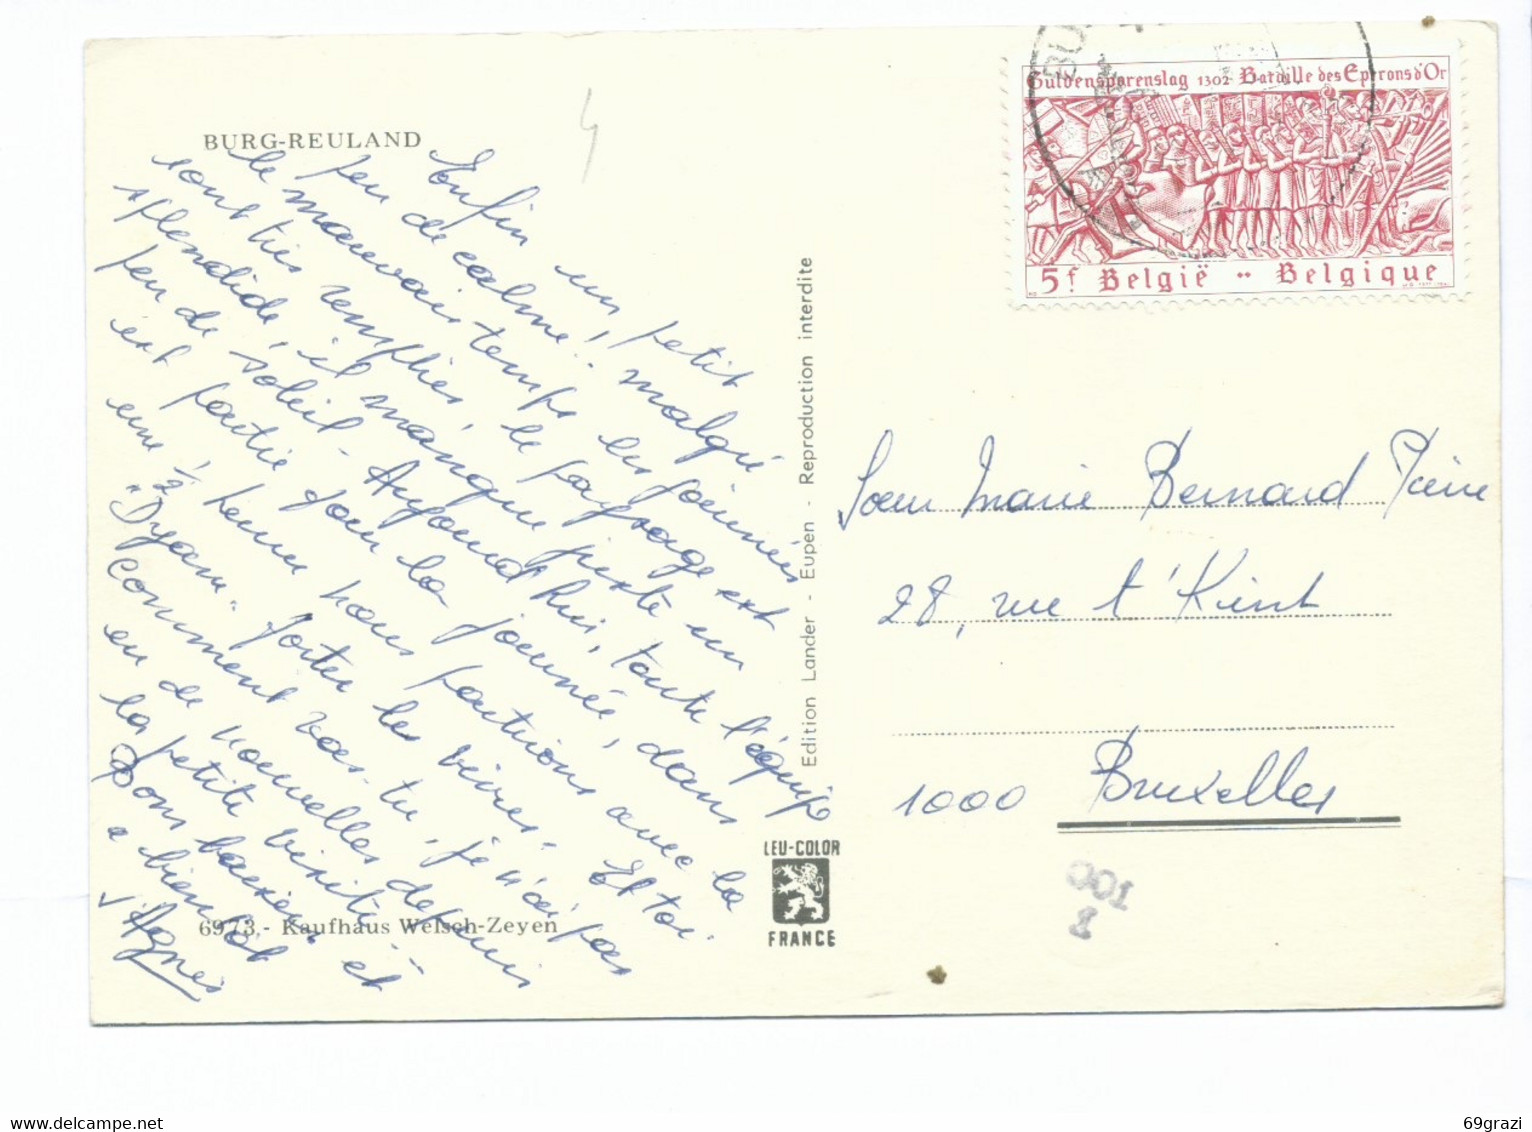 BURG-REULAND
4
Enfin un petit
peu de calme, malgré
le mauvais temps les journées
sont très remplies, le paysage est
splendide, il manque juste un
peu de soleil - Aujourd'hui, toute l'équipe
est partie pour la journée, dans
une 1/2 heure nous partirons avec la
"Dyam" porter les vivres. Et toi
comment vas-tu, je n'ai pas
eu de nouvelles depuis
la petite visite -
Bons baisers et
a bientôt
Agnès
6973,- Kaufhaus Welsch-Zeyen
Edition Lander - Eupen - Reproduction interdite
LEU-COLOR
FRANCE
BU
Guldensporenslag 1302 Bataille des Eperons d'Or
5f België - Belgique
Soeur Marie Bernard Pierre
28, rue t'Kint
1000 Bruxelles
001
1
69grazi